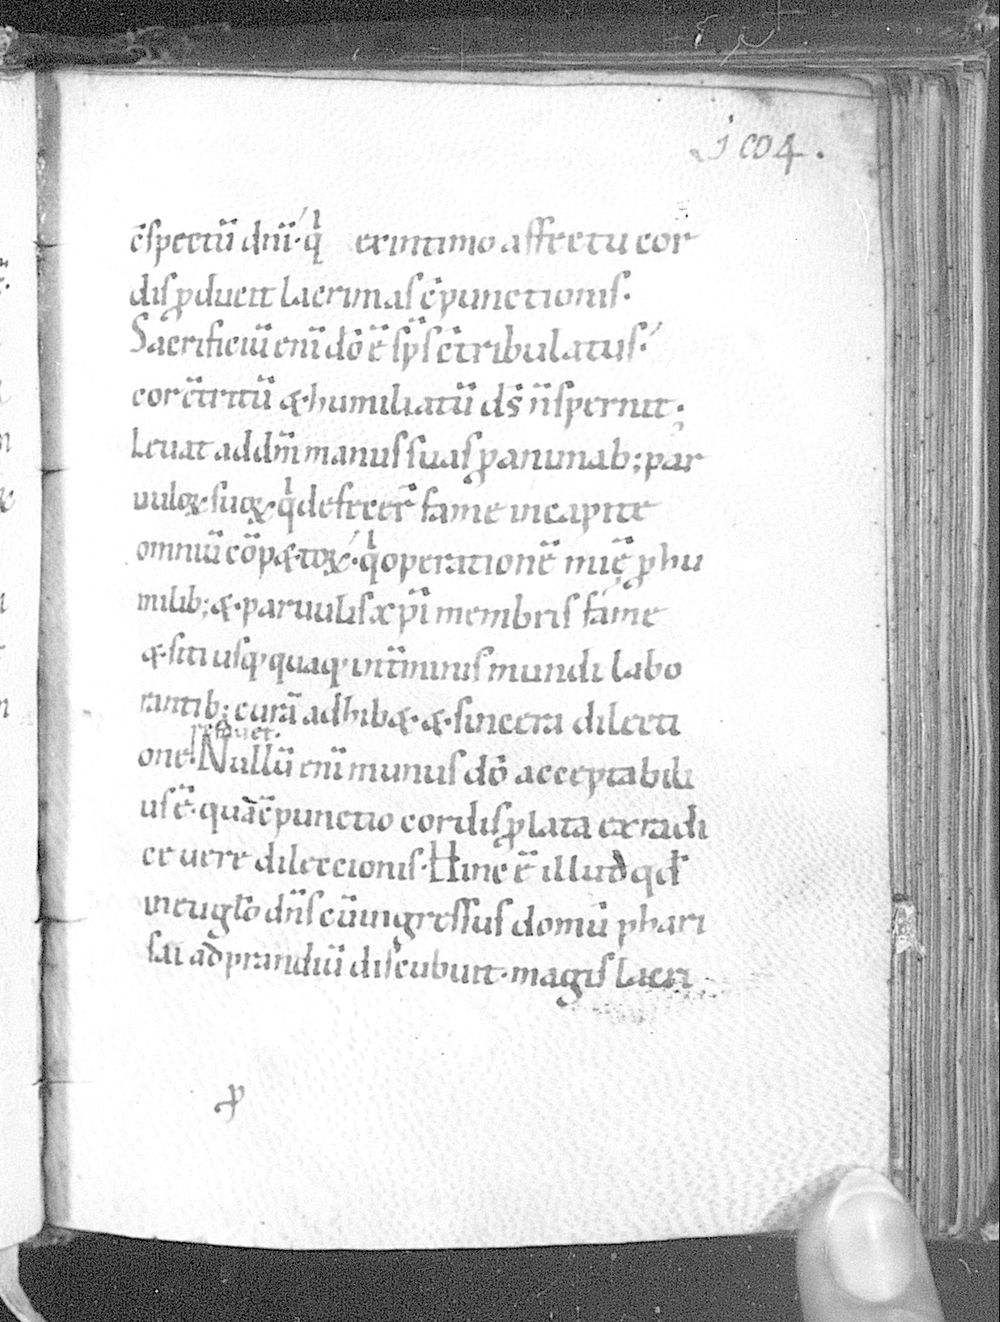 j co4.
c̄spectū dn̄i· qͥ ex intimo affectu cor
dis ꝓducit lacrimas cōpunctionis·
Sacrificiū enī dō ē sp̄s c̄tribulatus·
cor c̄tritū &· humiliatū ds̄ n̄ spernit;
Leuat ad dn̄m manus suas ꝓ animab; par
uuloꝝ suoꝝ· qͥ defecer̄ fame in capite
omniū cōp&·toꝝ· qͥ operationē mīę ꝓ hu
milib; &· paruulis xp̄i membris fame
&· siti usq· quaq· in t̄minis mundi labo
rantib; curā adhib&· &· sincera dilecti
one· Nullū enī munus dō acceptabili
us ē· quā c̄punctio cordis ꝓlata ex radi
ce uere dilectionis· Hinc ē illud qd̄
in euglō dn̄s cū ingressus domū phari
sai ad prandiū discubuit· magis lacri
ꝓ